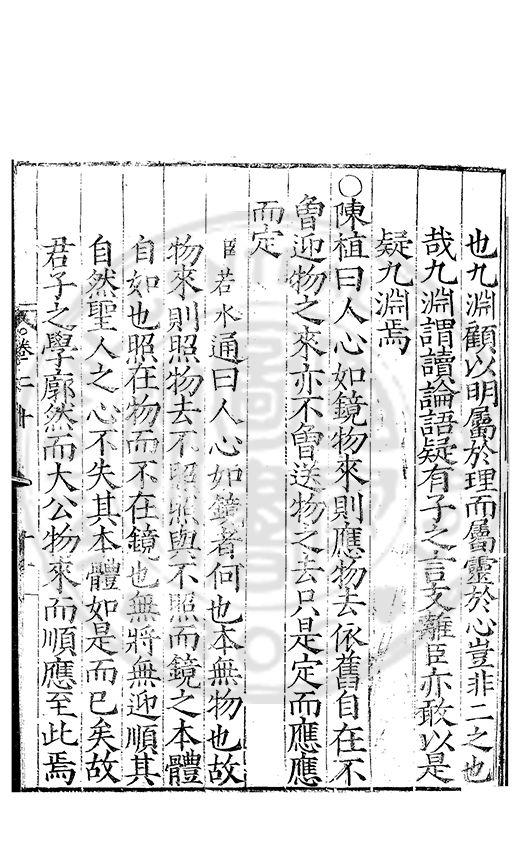 也九淵顧以明屬於理而屬靈於心豈非二之也
哉九淵謂讀論語疑有子之言支離臣亦敢以是
疑九淵焉
○陳植曰人心如鏡物來則應物去依舊自在不
曾迎物之來亦不曾送物之去只是定而應應
而定
臣若水通曰人心如鏡者何也本無物也故
物來則照物去不照照與不照而鏡之本體
自如也照在物而不在鏡也無將無迎順其
自然聖人之心不失其本體如是而已矣故
君子之學廓然而大公物來而順應至此焉
卷二十